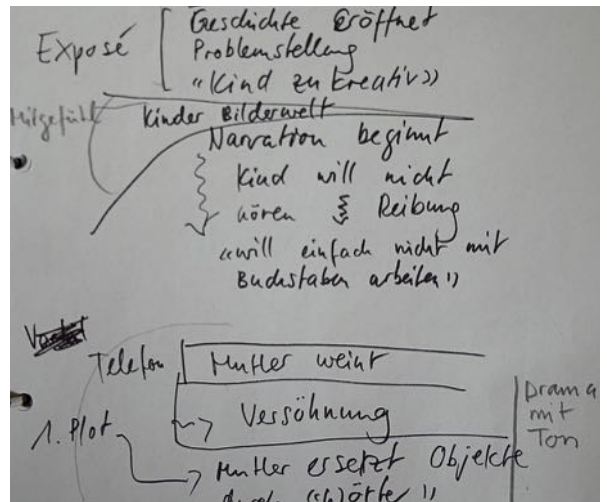 Exposé
Geschichte eröffnet
Problemstellung
"Kind zu kreativ"
Mitgefühl
Kinder Bilderwelt
Narration beginnt
Kind will nicht
hören Reibung
"will einfach nicht mit
Buchstaben arbeiten"
Telefon
Mutter weint
Versöhnung
Drama
mit
Ton
1. Plot
Mutter ersetzt Objekte
durch